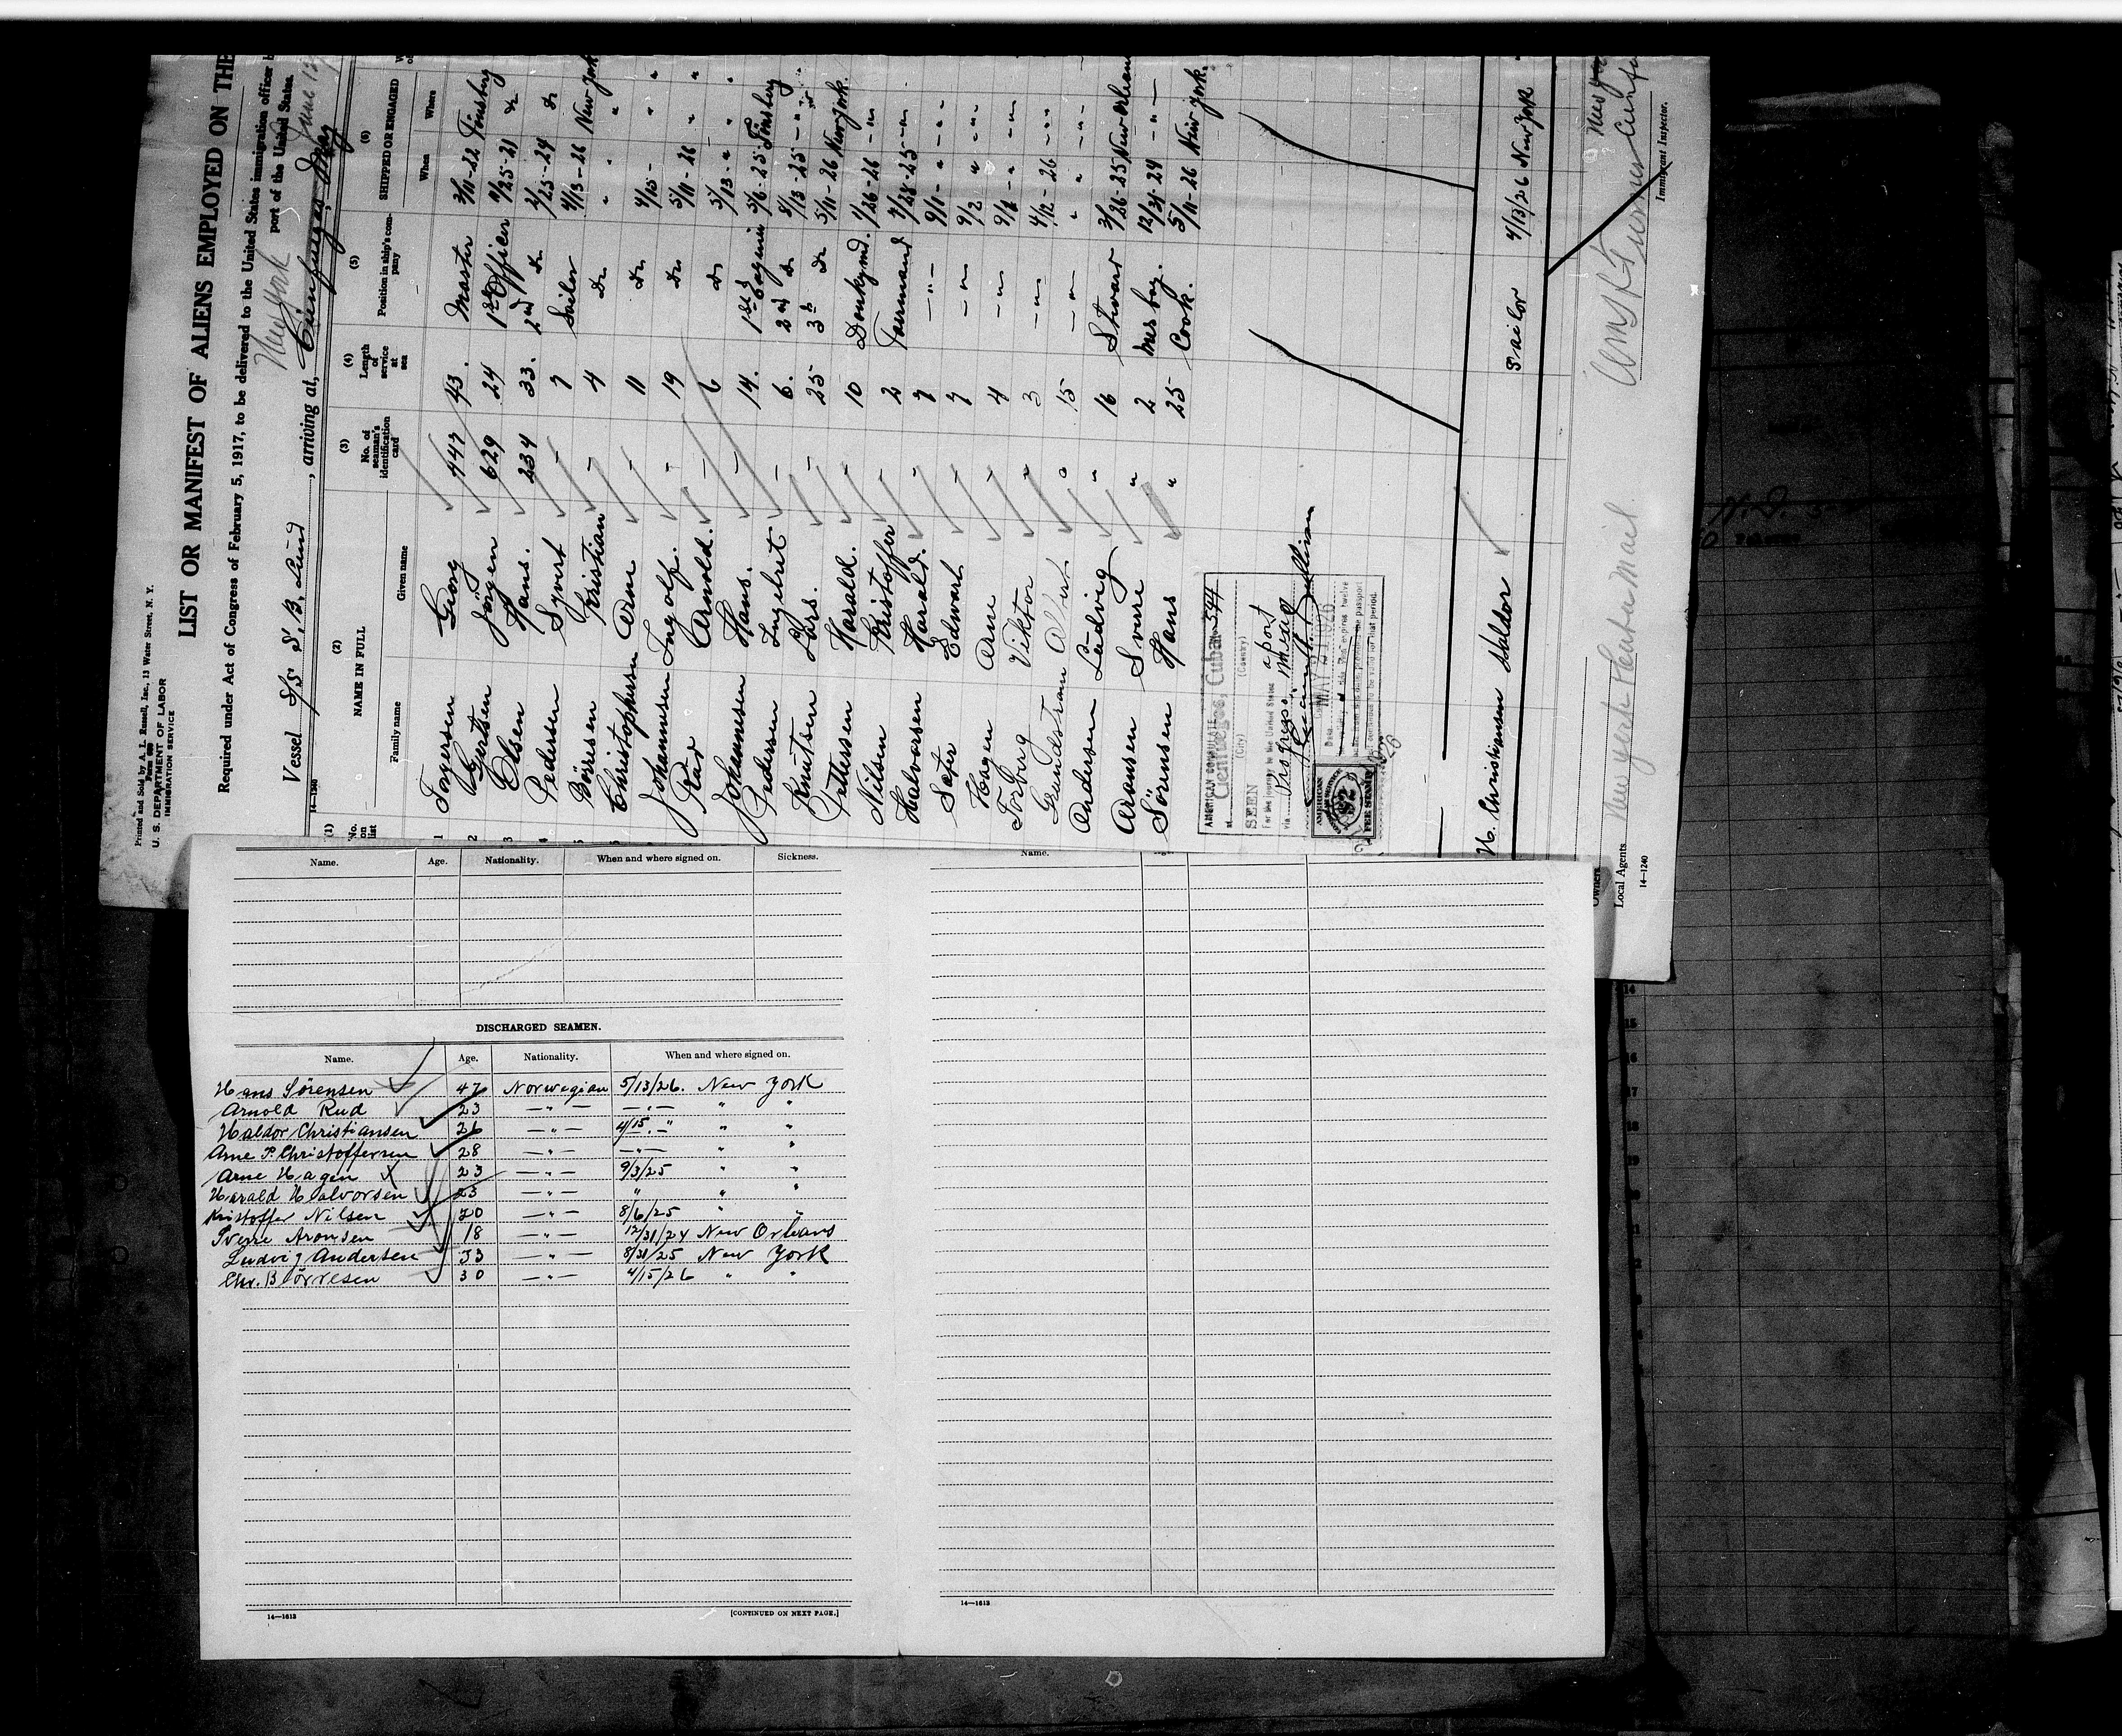 Printed and Sold by A. L. Russell, Inc., 13 Water Street, N. Y.
U. S. DEPARTMENT OF LABOR
IMMIGRATION SERVICE
LIST OR MANIFEST OF ALIENS EMPLOYED ON THE
Required under Act of Congress of February 5, 1917, to be delivered to the United States immigration officer
New York port of the United States.
Vessel S/S S. B. Lund, arriving at, Cienfuegos, May June 12
14—1240
(1) (2) (3) (4) (5) (6)
No. on list NAME IN FULL No. of seaman's identification card Length of service at sea Position in ship's company SHIPPED OR ENGAGED
Family name Given name When Where
1 Torgersen Georg 447 43. Master 3/11-22 Tönsberg
2 Gertsen Jörgen 629 24 1st Officer 2/25-21 do
3 Olsen Hans. 234 33. 2nd do 2/25-24 do
4 Pedersen Syvert - 7 Sailor 4/13-26 New York
5 Börresen Kristian - 4 do " " "
6 Christophersen Arne - 11 do 4/15 - "
Johannsen Ingolf. - 19 do 5/11-26 " "
Rud Arnold. - 6 do 5/13-" " "
Johannsen Hans. - 14. 1st Engineer 5/6-25 Tönsberg
Pedersen Ingebret - 6. 2nd do 8/13-25 -"-
Knutsen Lars. - 25 3rd do 5/11-26 New York.
Pettersen Harald. - 10 Donkymd. 1/26-26 -"-
Nilsen Kristoffer - 2 Fournand 7/28-25 -"-
Halvorsen Harald. - 7 -"- 9/1- " -"-
Sater Edwart - 7 -"- 9/2 " -"-
Hagen Arne " 4 -"- 9/2 - " -"-
Torbug Viktor " 3 -"- 4/12-26 -"-
Grundstrøm Albert " 15 -"- " -"-
Andersen Ludvig " 16 Stuart 3/26-25 New Orleans
Aronsen Sverre " 2 Mes boy. 12/31-24 -"-
Sörensen Hans " 25 Cook. 5/11-26 New York.
AMERICAN CONSULATE
at Cienfuegos, Cuba 544
(City) (Country)
SEEN
For the journey to the United States
via
Date MAY 21 1926
The validity of this visa expires twelve
AMERICAN
$2
FEE STAMP
H. Christiansen Haldor Sailor 4/13/26 New York
Owners
Local Agents New York & Cuba Mail
Immigrant Inspector.
14—1240
Name. Age. Nationality. When and where signed on. Sickness.
DISCHARGED SEAMEN.
Name. Age. Nationality. When and where signed on.
Hans Sörensen 47 Norwegian 5/13/26. New York
Arnold Rud 23 —"— —"— " "
Haldor Christiansen 26 —"— 4/15. —" " "
Arne P. Christoffersen 28 —"— —"— " "
Arne Hagen 23 —"— 9/3/25 " "
Harald Halvorsen 23 —"— " " "
Kristoffer Nilsen 20 —"— 8/6/25 " "
Sverre Aronsen 18 —"— 12/31/24 New Orleans
Ludvig Andersen 33 —"— 8/31/25 New York
Chr. Börresen 30 —"— 4/15/26 " "
14—1613
[CONTINUED ON NEXT PAGE.]
Name.
14—1613